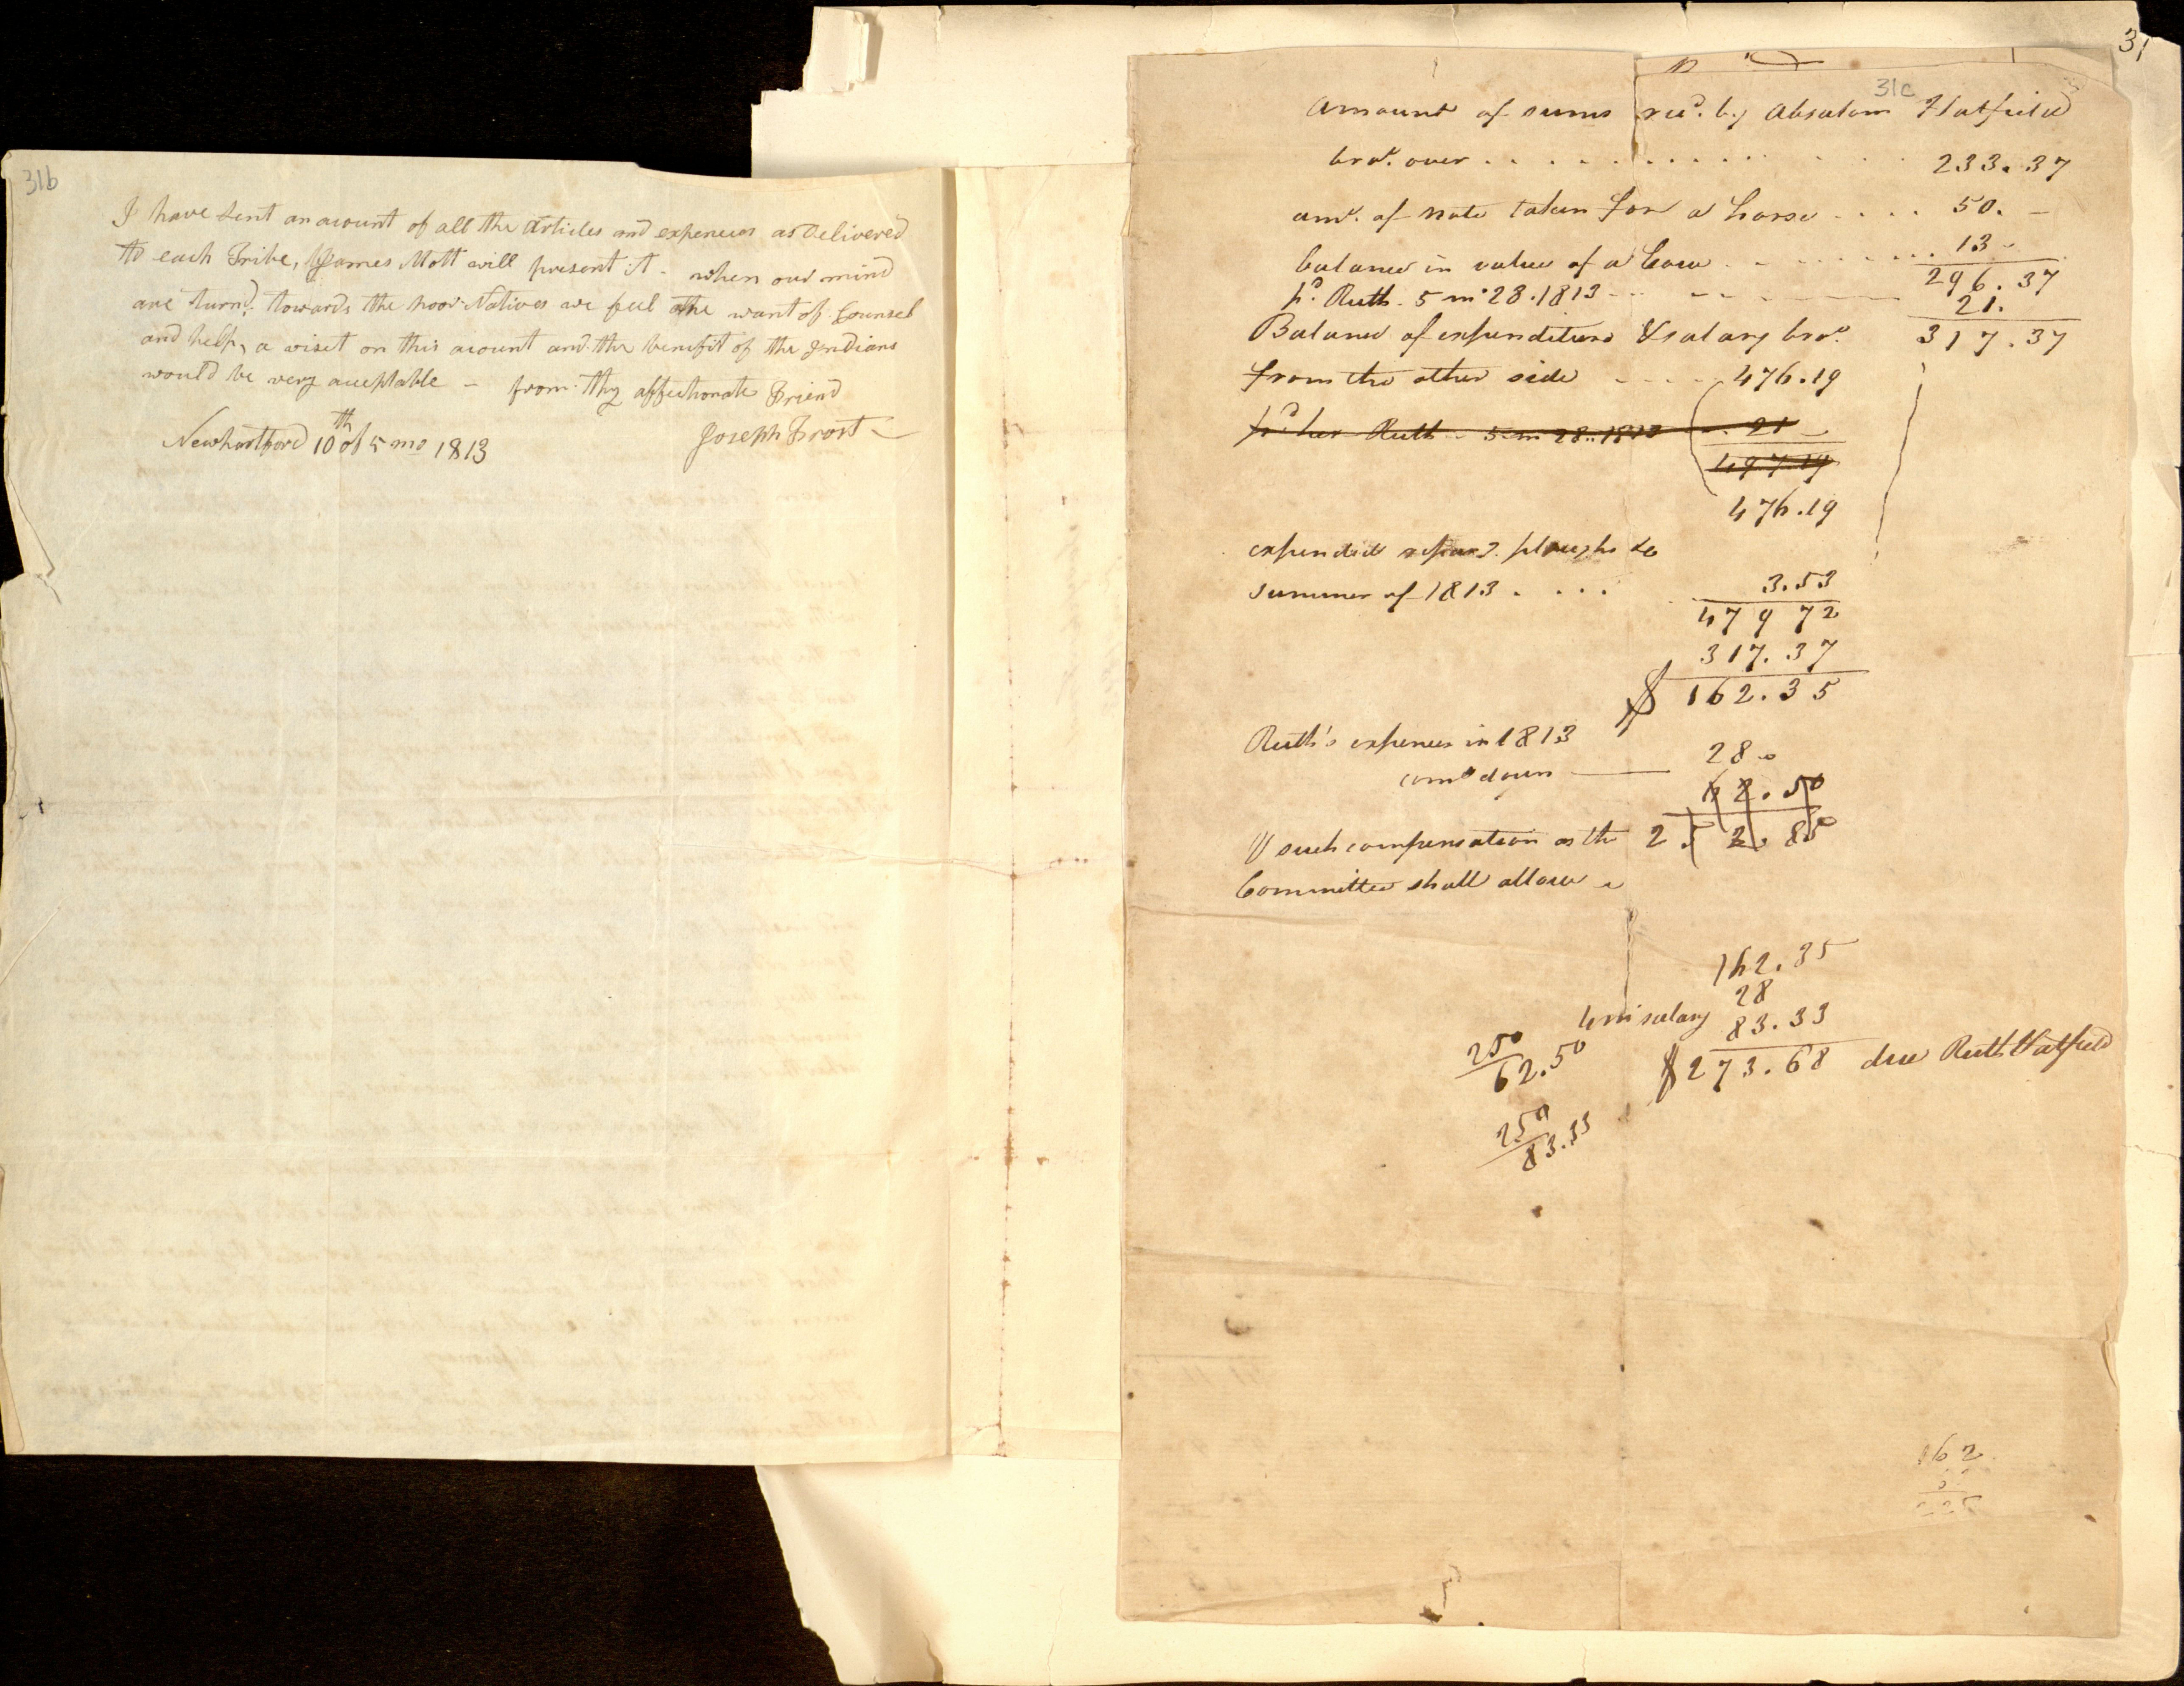 31b
I have sent an acount of all the Articles and expences as Delivered
to each Tribe, James Mott will present it - when our mind
are turnd. towards the poor Natives we feel the want of Counsel
and help, a visit on this acount and the benefit of the Indians
would be very acceptable - from thy affectionate Friend
Newhartford 10th of 5 mo 1813 Joseph Frost
31
31c
Amount of sums recd. by Absalom Hatfield
brot. over . . . . . . . . . . . 233.37
amt. of note taken for a horse . . . . 50. -
balance in value of a Cow . . . . . . . 13 -
296.37
pd. Ruth. 5 mo 28. 1813 - - - 21.
Balance of expenditure & salary brot. 317.37
from the other side - - - - 476.19
pd. her Ruth - 5 m 28. 1813 - 21 -
497.19
476.19
expended repairg. ploughs &c
summer of 1813 . . . . 3.53
479 72
317.37
$ 162.35
Ruth's expences in 1813 28 -
coming down 62.50
252.85
& such compensation as the
Committee shall allow -
162.35
28
4 m salary 83.33
$273.68 due Ruth Hatfield
250
62.50
250
83.33
162